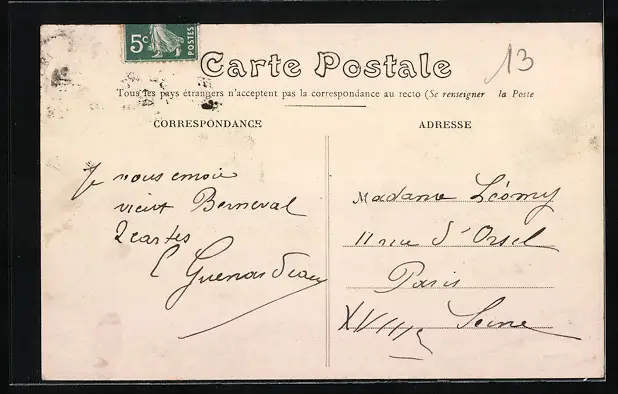 5c POSTES
13
Carte Postale
Tous les pays étrangers n'acceptent pas la correspondance au recto (Se renseigner la Poste
CORRESPONDANCE
ADRESSE
Je vous envoie
vieux Berneval
2 cartes
Madame Léomy
11 rue d'Orsel
Paris
XVIIIe Seine